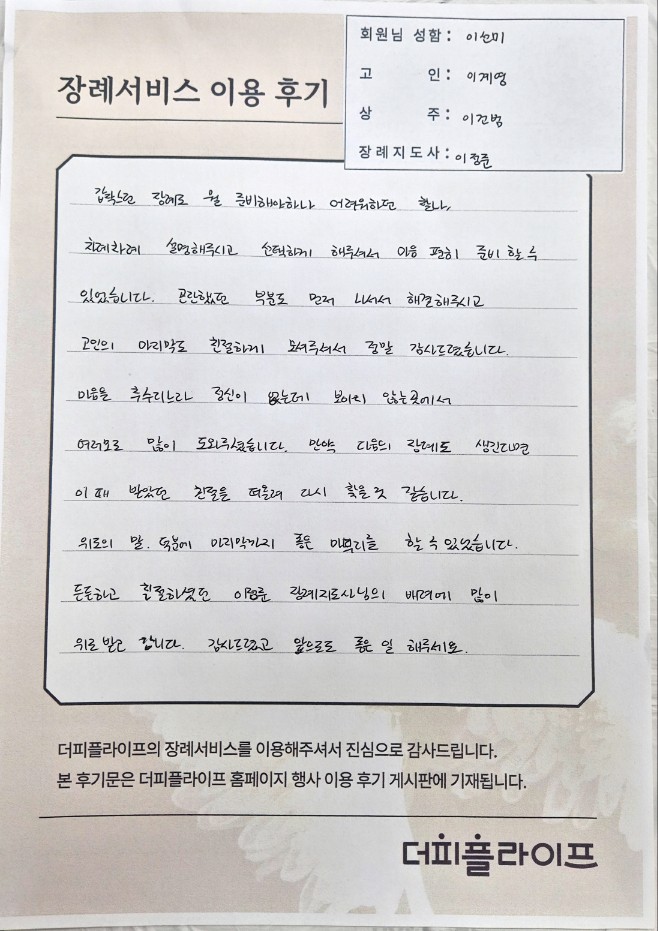 장례서비스 이용 후기
회원님 성함 : 이선미
고 인 : 이계영
상 주 : 이건범
장례지도사 : 이정준
갑작스런 장례로 뭘 준비해야하나 어려워하던 찰나,
차례차례 설명해주시고 선택하게 해주셔서 마음 편히 준비 할 수
있었습니다. 곤란했던 부분도 먼저 나서서 해결해주시고
고인의 마지막도 친절하게 모셔주셔서 정말 감사드렸습니다.
마음을 추수리느라 정신이 없는데 보이지 않는곳에서
여러모로 많이 도와주셨습니다. 만약 다음의 장례도 생긴다면
이 때 받았던 친절을 떠올려 다시 찾을 것 같습니다.
위로의 말. 덕분에 마지막까지 좋은 마무리를 할 수 있었습니다.
든든하고 친절하셨던 이정준 장례지도사님의 배려에 많이
위로 받고 갑니다. 감사드렸고 앞으로도 좋은 일 해주세요.
더피플라이프의 장례서비스를 이용해주셔서 진심으로 감사드립니다.
본 후기문은 더피플라이프 홈페이지 행사 이용 후기 게시판에 기재됩니다.
더피플라이프